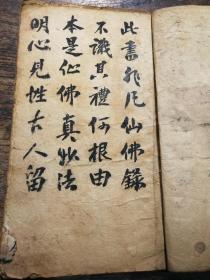 此書非凡仙佛錄
不識其禮何根由
本是仙佛真妙法
明心見性古人留